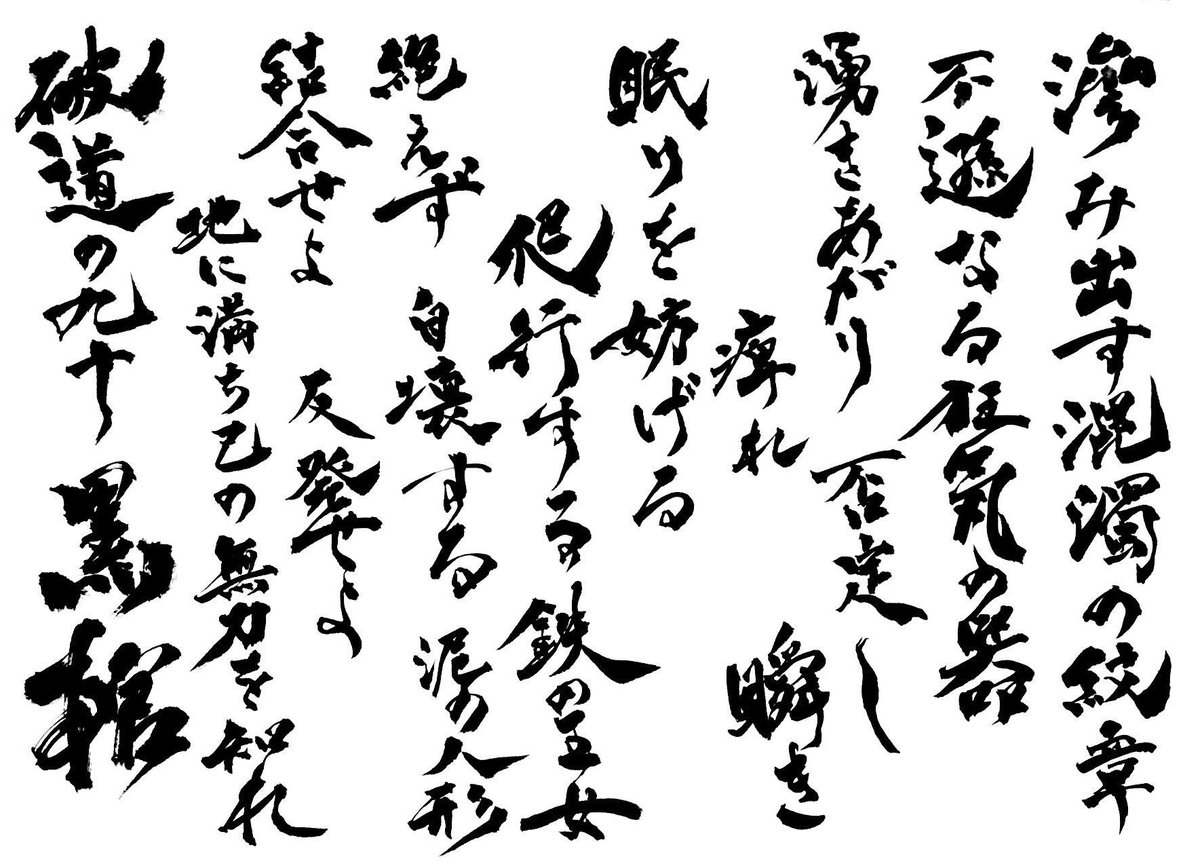 滲み出す混濁の紋章
不遜なる狂気の器
湧きあがり 否定し
痺れ 瞬き
眠りを妨げる
爬行する 鉄の王女
絶えず 自壊する 泥の人形
結合せよ 反発せよ
地に満ち己の無力を知れ
破道の九十 黒棺